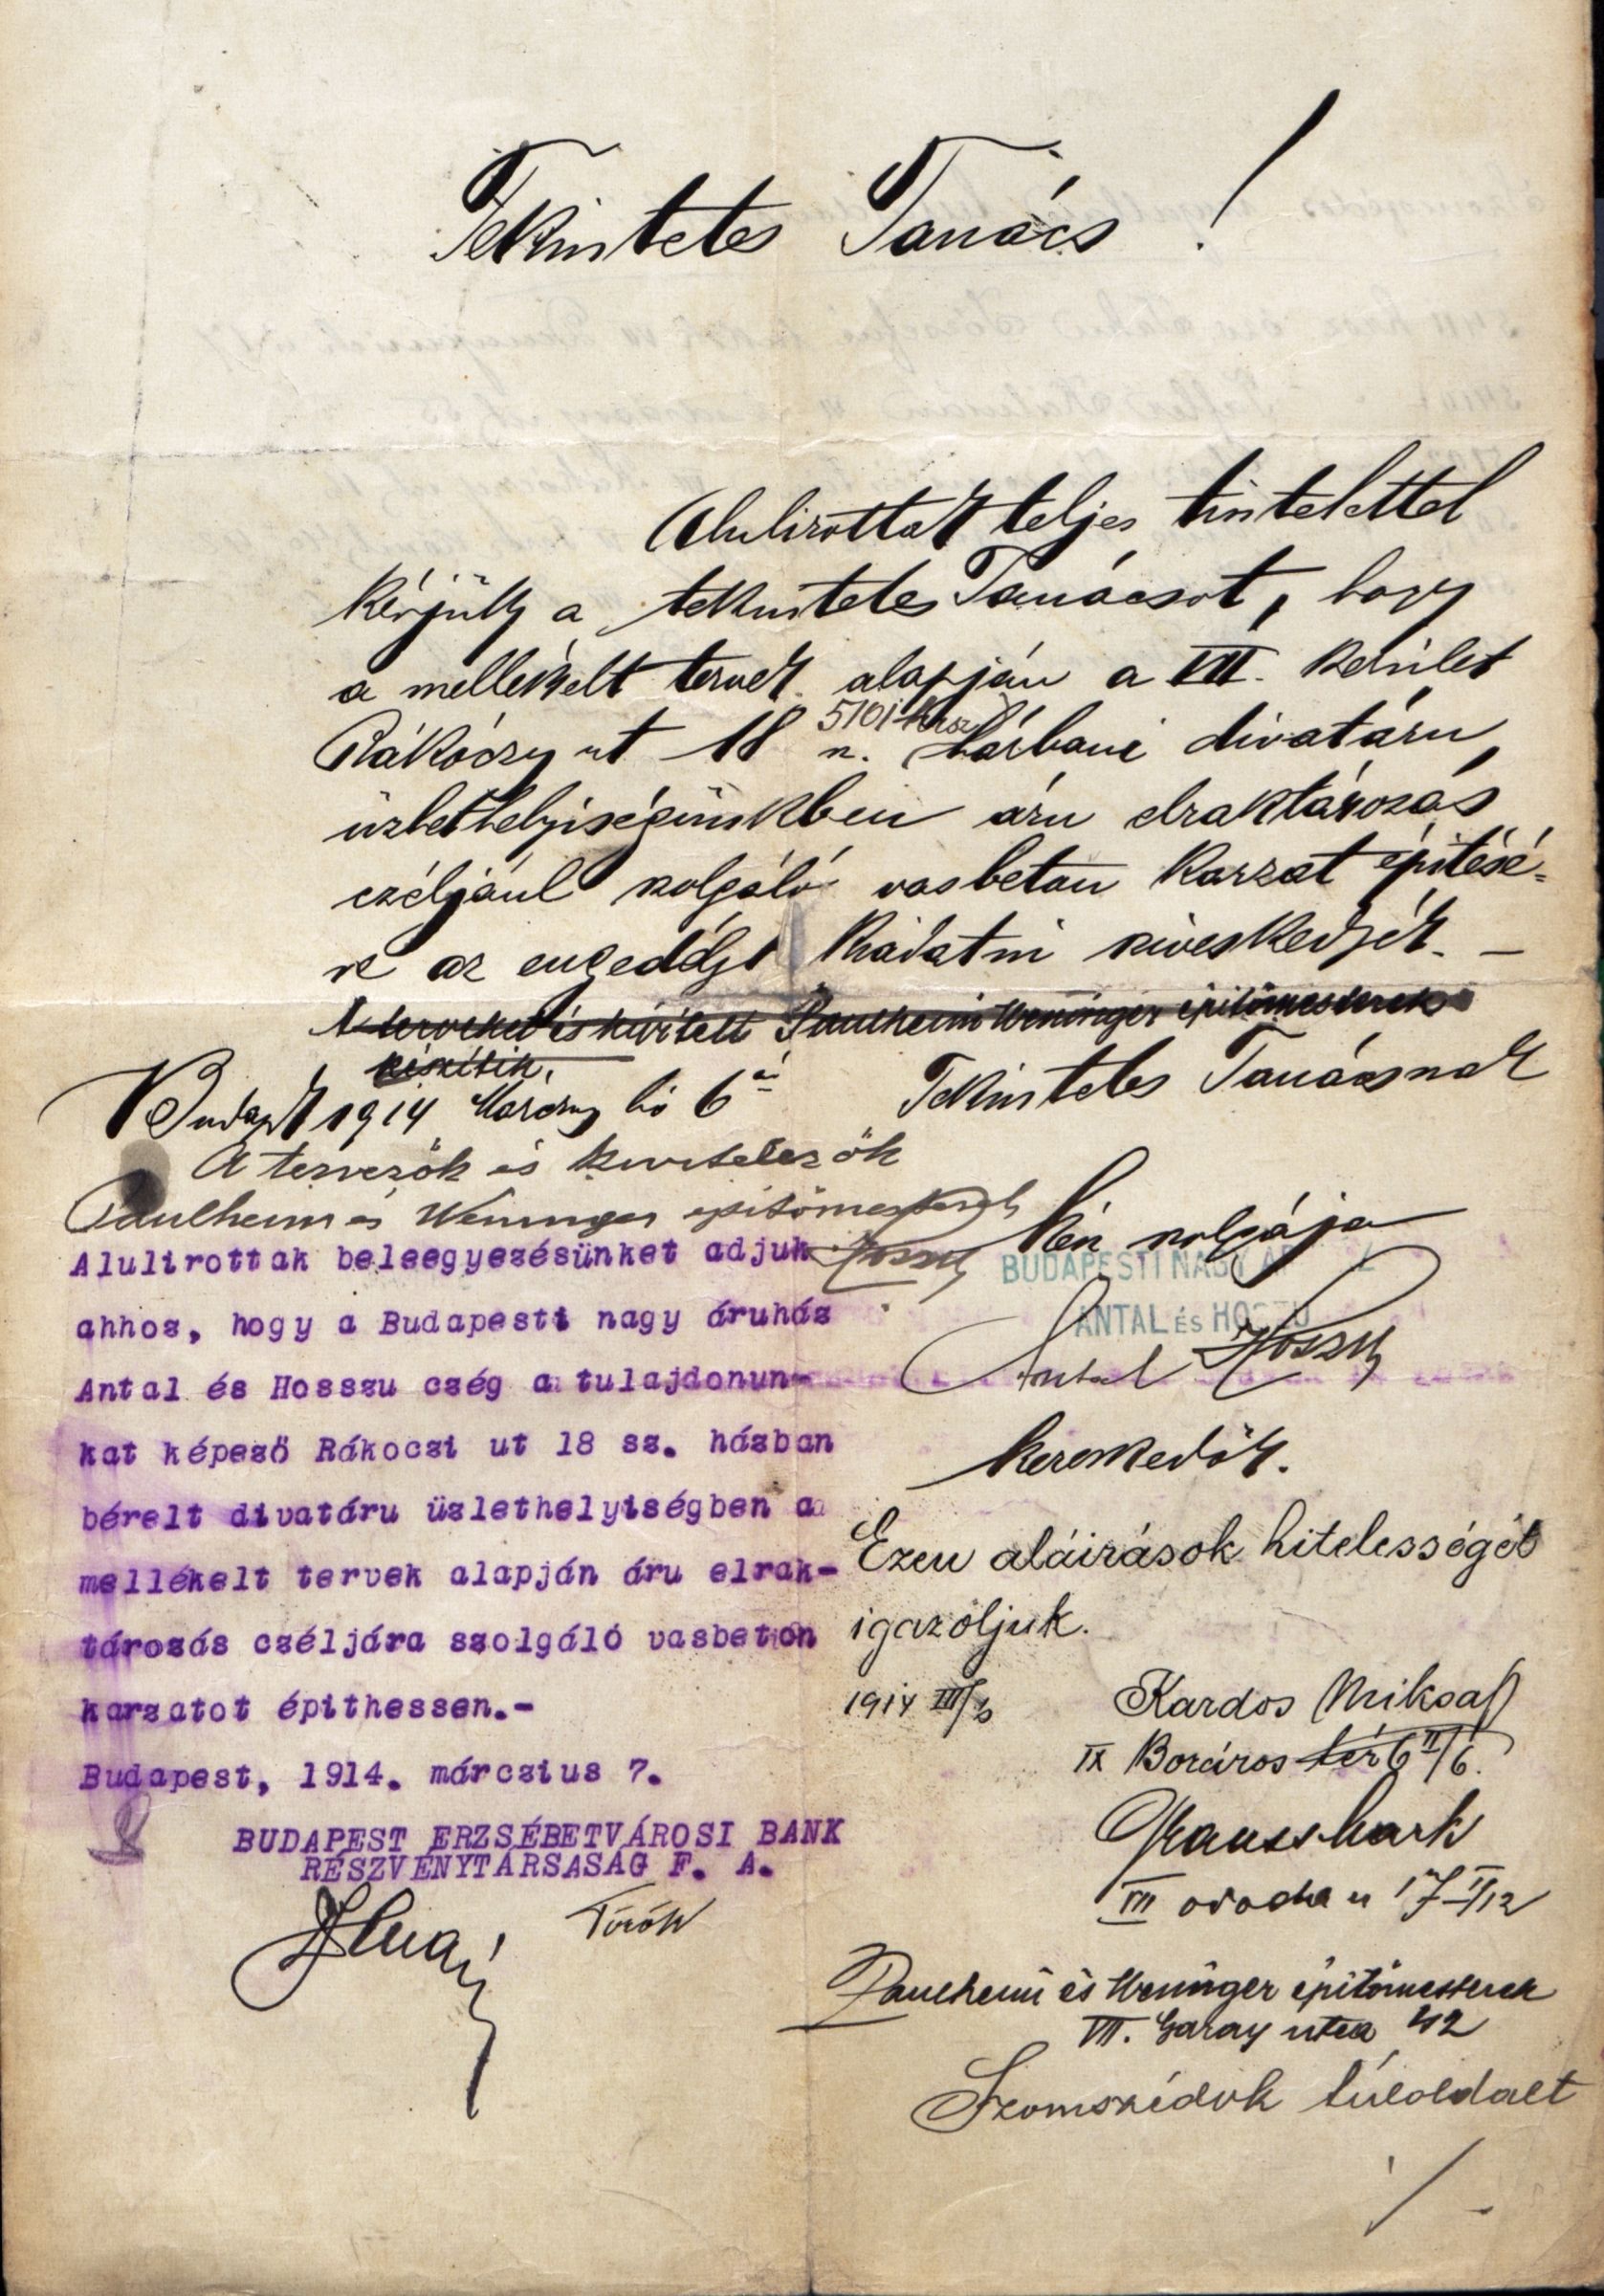 Tekintetes Tanács !
Alulirottak teljes tisztelettel
kérjük a tekintetes Tanácsot, hogy
a mellékelt tervek alapján a VII. kerület
5101 hrsz
Rákóczy ut 18 n. házbani divatáru
üzlethelyiségünkben áru elraktározás
czéljául szolgáló vasbeton karzat építésé-
re az engedélyt kiadatni sziveskedjék. –
A terveket és kivitelt Paulheim Weninger építőmesterek
készitik.
Budapest 1914 Március hó 6 án
Tekintetes Tanácsnak
A tervezők és kivitelezők
Paulheim és Weninger epitőmesterek
kén szolgája
Hosszu
BUDAPESTI NAGY ÁR Z
ANTAL ÉS HOSZU
Antal Hosszu
kereskedők.
Alulirottak beleegyezésünket adjuk
ahhoz, hogy a Budapesti nagy áruház
Antal és Hosszu czég a tulajdonun-
kat képező Rákoczi ut 18 sz. házban
bérelt divatáru üzlethelyiségben a
mellékelt tervek alapján áru elrak-
tározás czéljára szolgáló vasbeton
karzatot épithessen.-
Budapest, 1914. márczius 7.
BUDAPEST ERZSÉBETVÁROSI BANK
RÉSZVÉNYTÁRSASÁG F. A.
Török
Ezen aláirások hitelességét
igazoljuk.
1914 III/
Kardos Miksa
IX Boráros tér 6 II/6.
Krausz Mark
VII ovoda u 17 II/12
Paulheim és Weninger építőmesterek
VII. Garay utca 42
Szomszédok túloldalt
./-